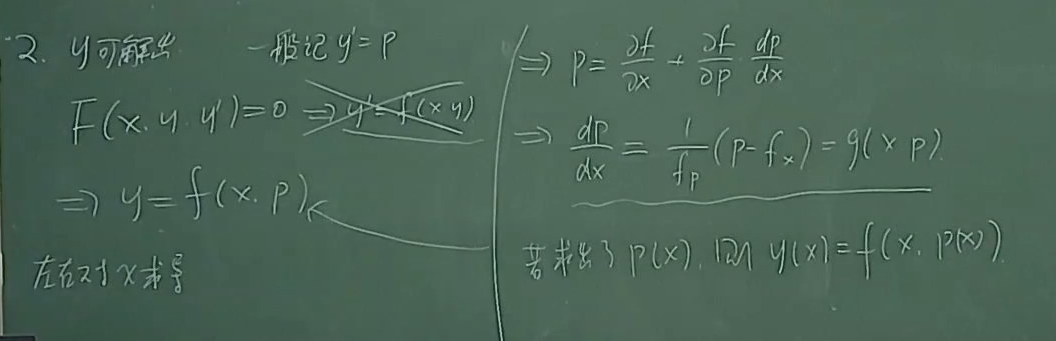 2. y可解出 一般记 y'=p
F(x.y.y')=0 ⇒ y'=f(x y)
⇒ y=f(x.p)
左右对x求导
⇒ p= ∂f/∂x + ∂f/∂p · dp/dx
⇒ dp/dx = 1/f_p (p-f_x) = g(x p).
若求出了 p(x), 则 y(x)=f(x, p(x)).